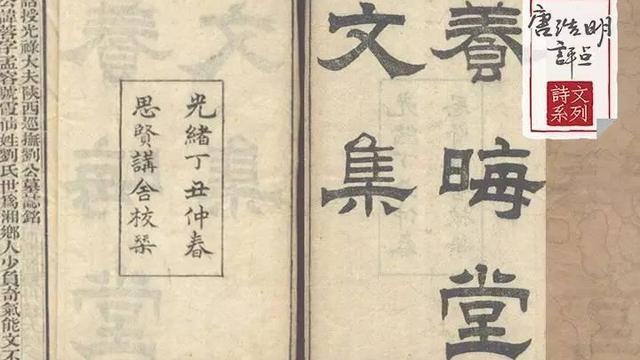 唐浩明
评点
詩文系列
養晦堂
文集
光緒丁丑仲春
思賢講舍校槧
授光祿大夫陝西巡撫劉公墓誌銘
公諱蓉字孟容號霞仙姓劉氏世爲湘鄉人少負奇氣能文不